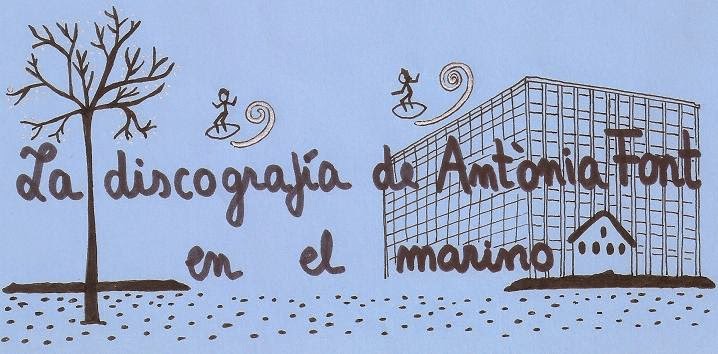 La discografía de Antònia Font
en el marino